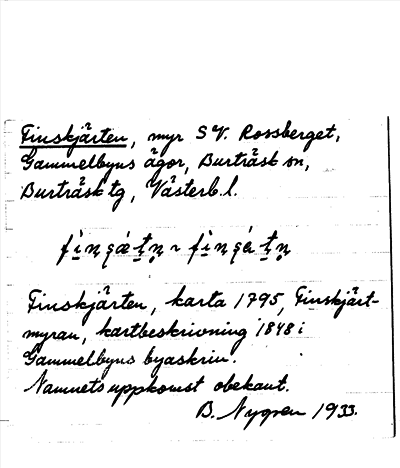 Finskjärten, myr S V. Rossberget,
Gammelbyns ägor, Burträsk sn,
Burträsk tg, Västerb. l.
Finskjärten, karta 1795, Finskjärt-
myran, kartbeskrivning 1848 i
Gammelbyns byaskrin.
Namnets uppkomst obekant.
B. Nygren 1933.